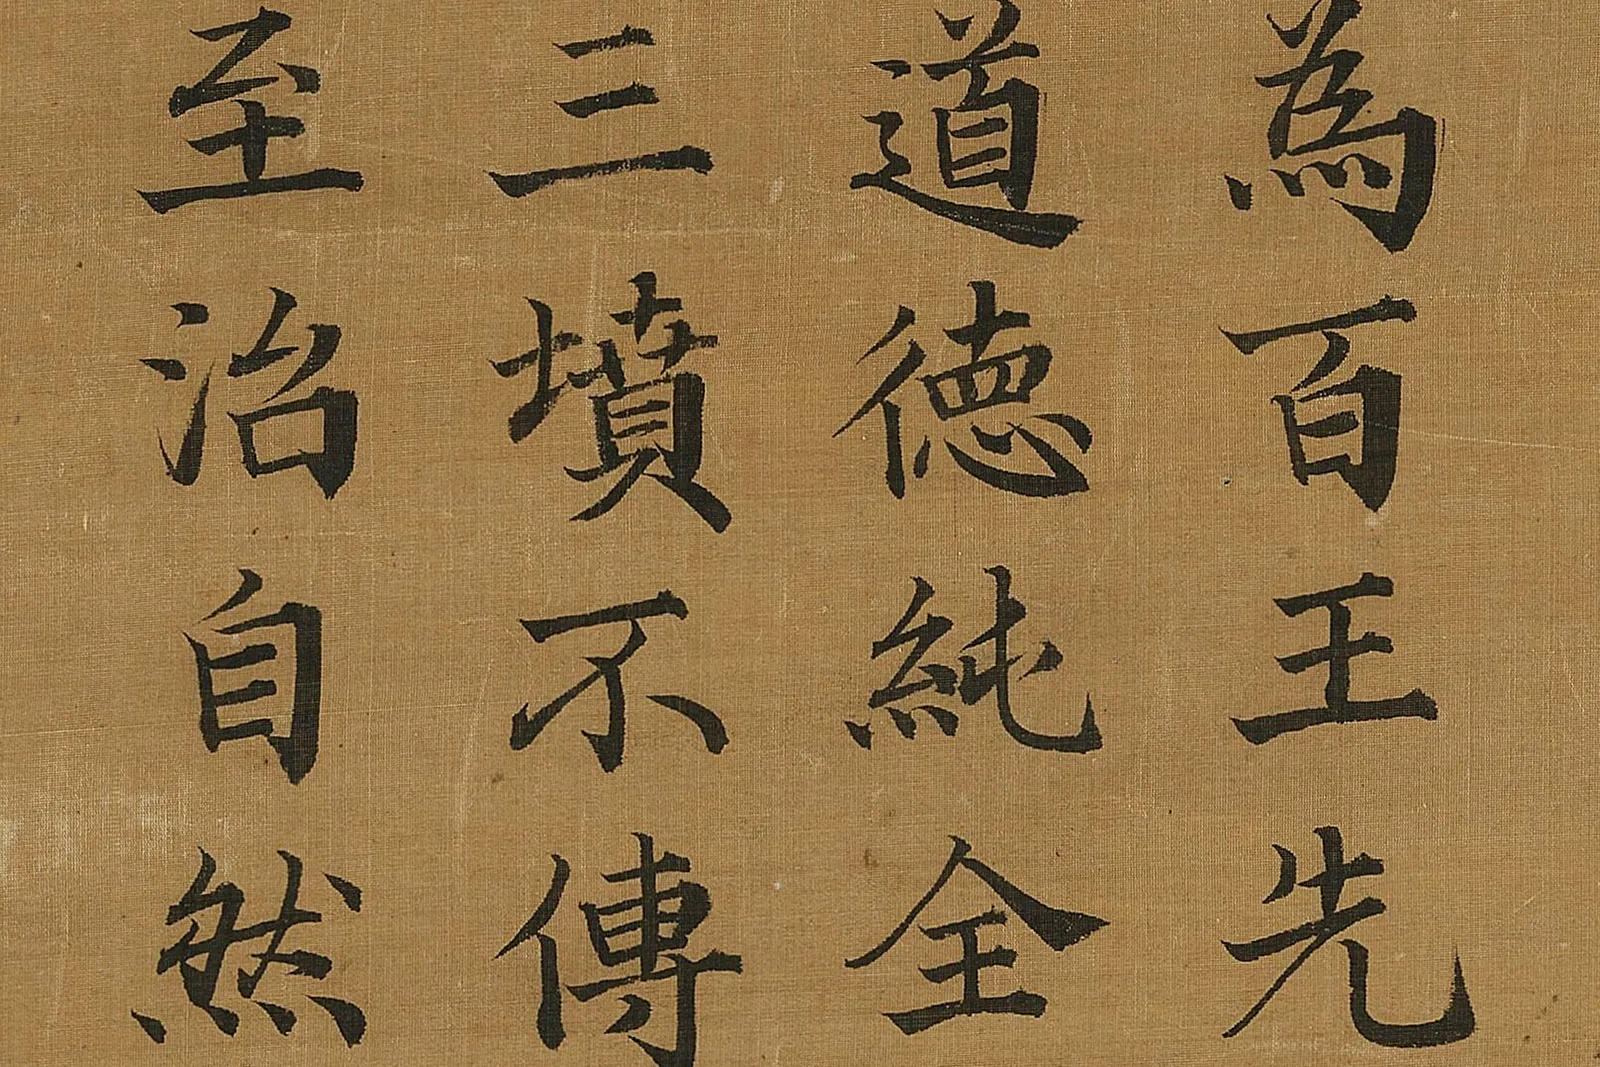 為百王先
道徳純全
三墳不傳
至治自然